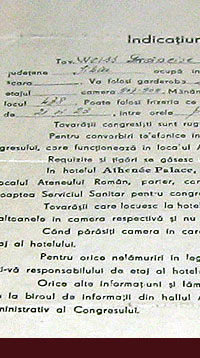 Indicațiun
Tov. WEISS Francisc
județene Sibiu ocupă în
scara Va folosi garderoba
etajul camera Mănân
locul 428 Poate folosi frizeria ce
de 21 la 23, între orele
Tovarășii congresiști sunt rug
Pentru convorbiri telefonice în
ongresului, care funcționează în localul A
Rechizite și țigări se găsesc
In hotelul Athenée Palace,
ocalul Ateneului Român, parter, camer
oaptea Serviciul Sanitar pentru congre
Tovarășii care locuesc la hote
altoanele în camera respectivă și nu
Când părăsiți camera în care
taj al hotelului.
Pentru orice nelămuriri în leg
i-vă responsabilului de etaj al hotel
Orice alte informațiuni și lăm
la biroul de informații din hallul A
ministrativ al Congresului.